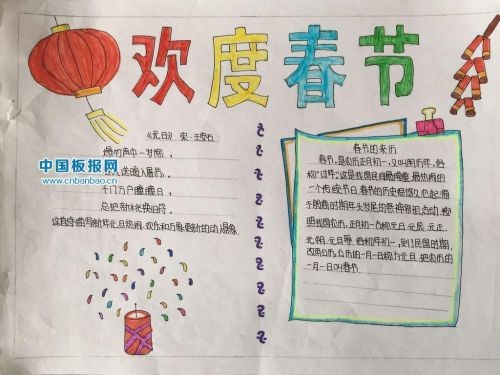 欢度春节
《元日》 宋·王安石
爆竹声中一岁除，
春风送暖入屠苏。
千门万户曈曈日，
总把新桃换旧符。
这首诗描写新年元旦热闹、欢乐和万象更新的动人景象
中国板报网
www.cnbanbao.cn
春节的来历
春节，是农历正月初一，又叫阴历年，俗
称“过年”。这是我国民间最隆重、最热闹的
一个传统节日。春节的历史很悠久，它起源于
殷商时期年头岁尾的祭神祭祖活动。按
照我国农历，正月初一古称元日、元辰、元正、
元朔、元旦等，俗称年初一，到了民国时期，
改用公历，公历的一月一日称为元旦，把农历的
一月一日叫春节。